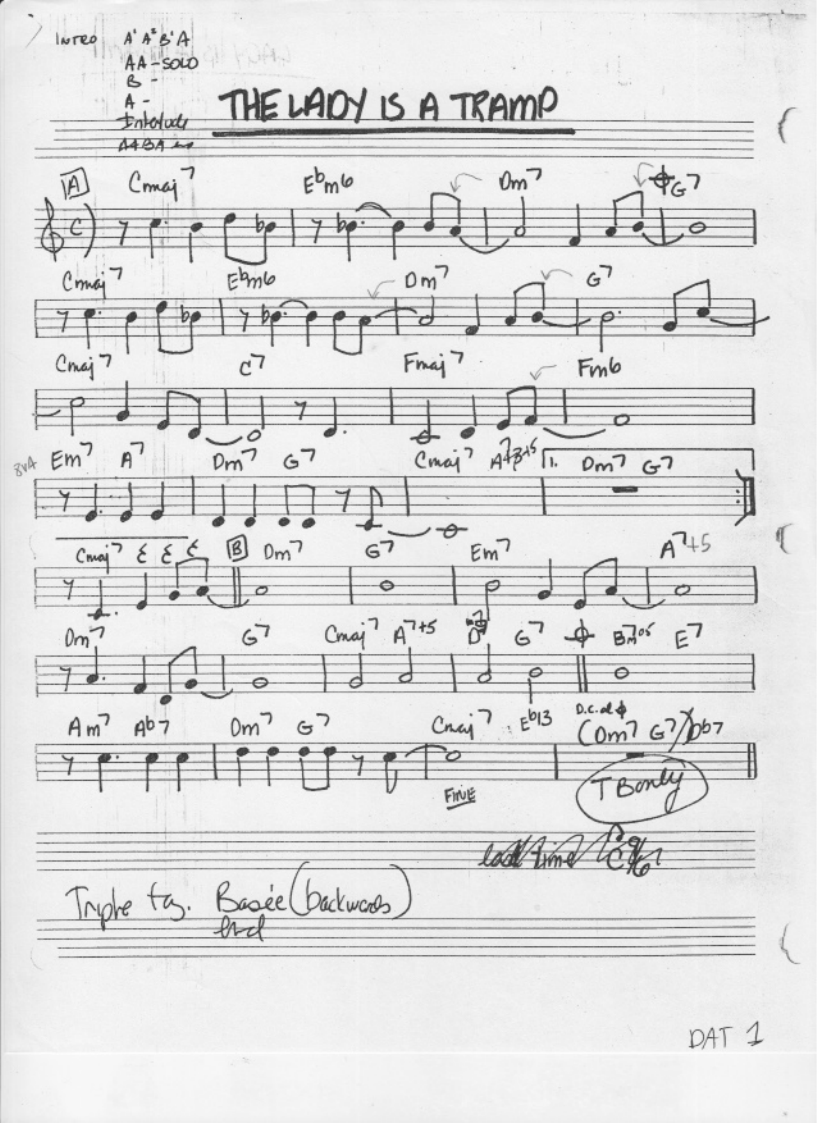 INTRO A¹ A² B¹ A
AA - SOLO
B -
A -
Interlude
THE LADY IS A TRAMP
A Cmaj7 Ebm6 Dm7 G7
Cmaj7 Ebm6 Dm7 G7
Cmaj7 C7 Fmaj7 Fm6
8VA Em7 A7 Dm7 G7 Cmaj7 1. Dm7 G7
Cmaj7 B Dm7 G7 Em7 A7+5
Dm7 G7 Cmaj7 A7+5 G7 E7
Am7 Ab7 Dm7 G7 Cmaj7 Eb13 D.C. al (Dm7 G7) Db7
FINE
T Bonly
last time
Triple tag. Basie (backwards)
end
DAT 1